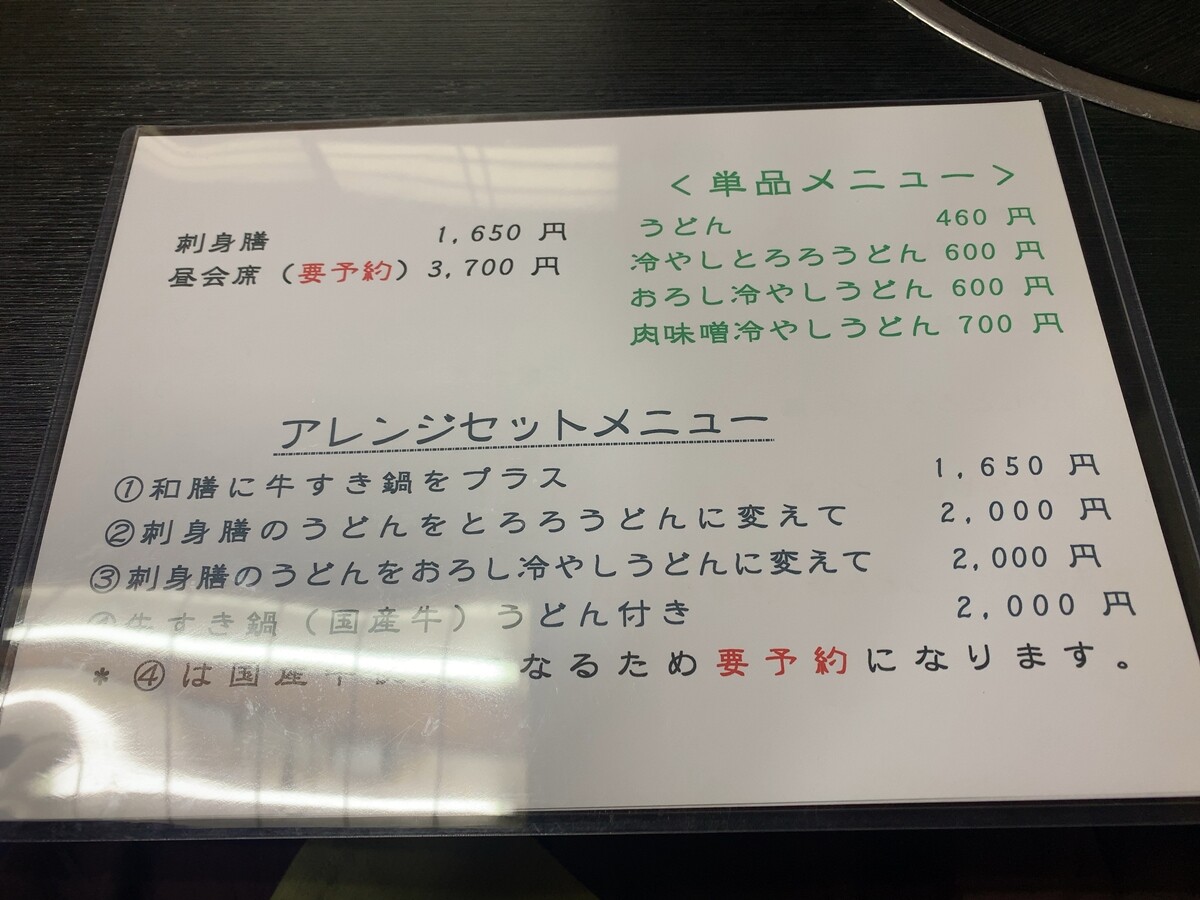 刺身膳 1,650 円
昼会席（要予約）3,700 円
＜単品メニュー＞
うどん 460 円
冷やしとろろうどん 600 円
おろし冷やしうどん 600 円
肉味噌冷やしうどん 700 円
アレンジセットメニュー
①和膳に牛すき鍋をプラス 1,650 円
②刺身膳のうどんをとろろうどんに変えて 2,000 円
③刺身膳のうどんをおろし冷やしうどんに変えて 2,000 円
④牛すき鍋（国産牛）うどん付き 2,000 円
* ④は国産牛 なるため要予約になります。